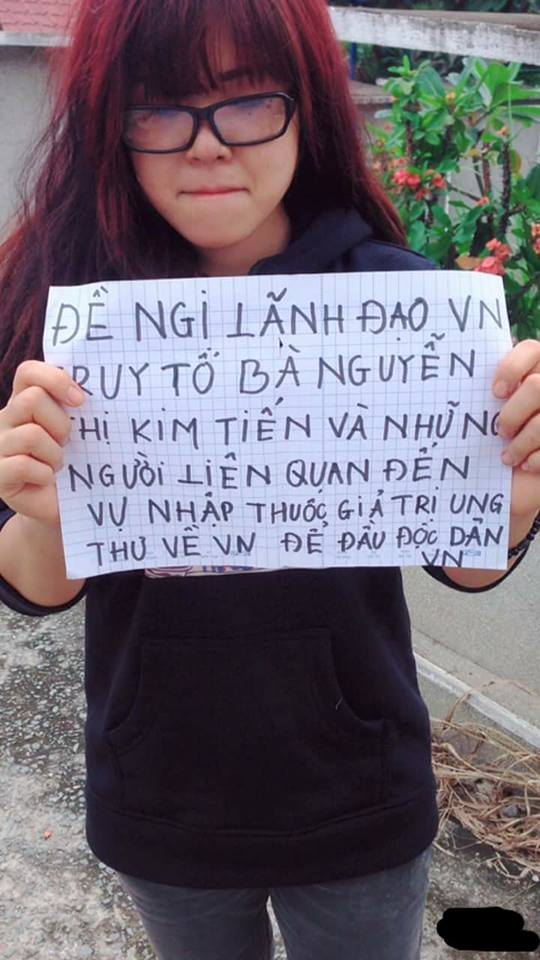 ĐỀ NGỊ LÃNH ĐẠO VN
RUY TỐ BÀ NGUYỄN
HỊ KIM TIẾN VÀ NHỮNG
NGƯỜI LIÊN QUAN ĐẾN
VỤ NHẬP THUỐC GIẢ TRỊ UNG
THƯ VỀ VN ĐỂ ĐẦU ĐỘC DÂN
VN